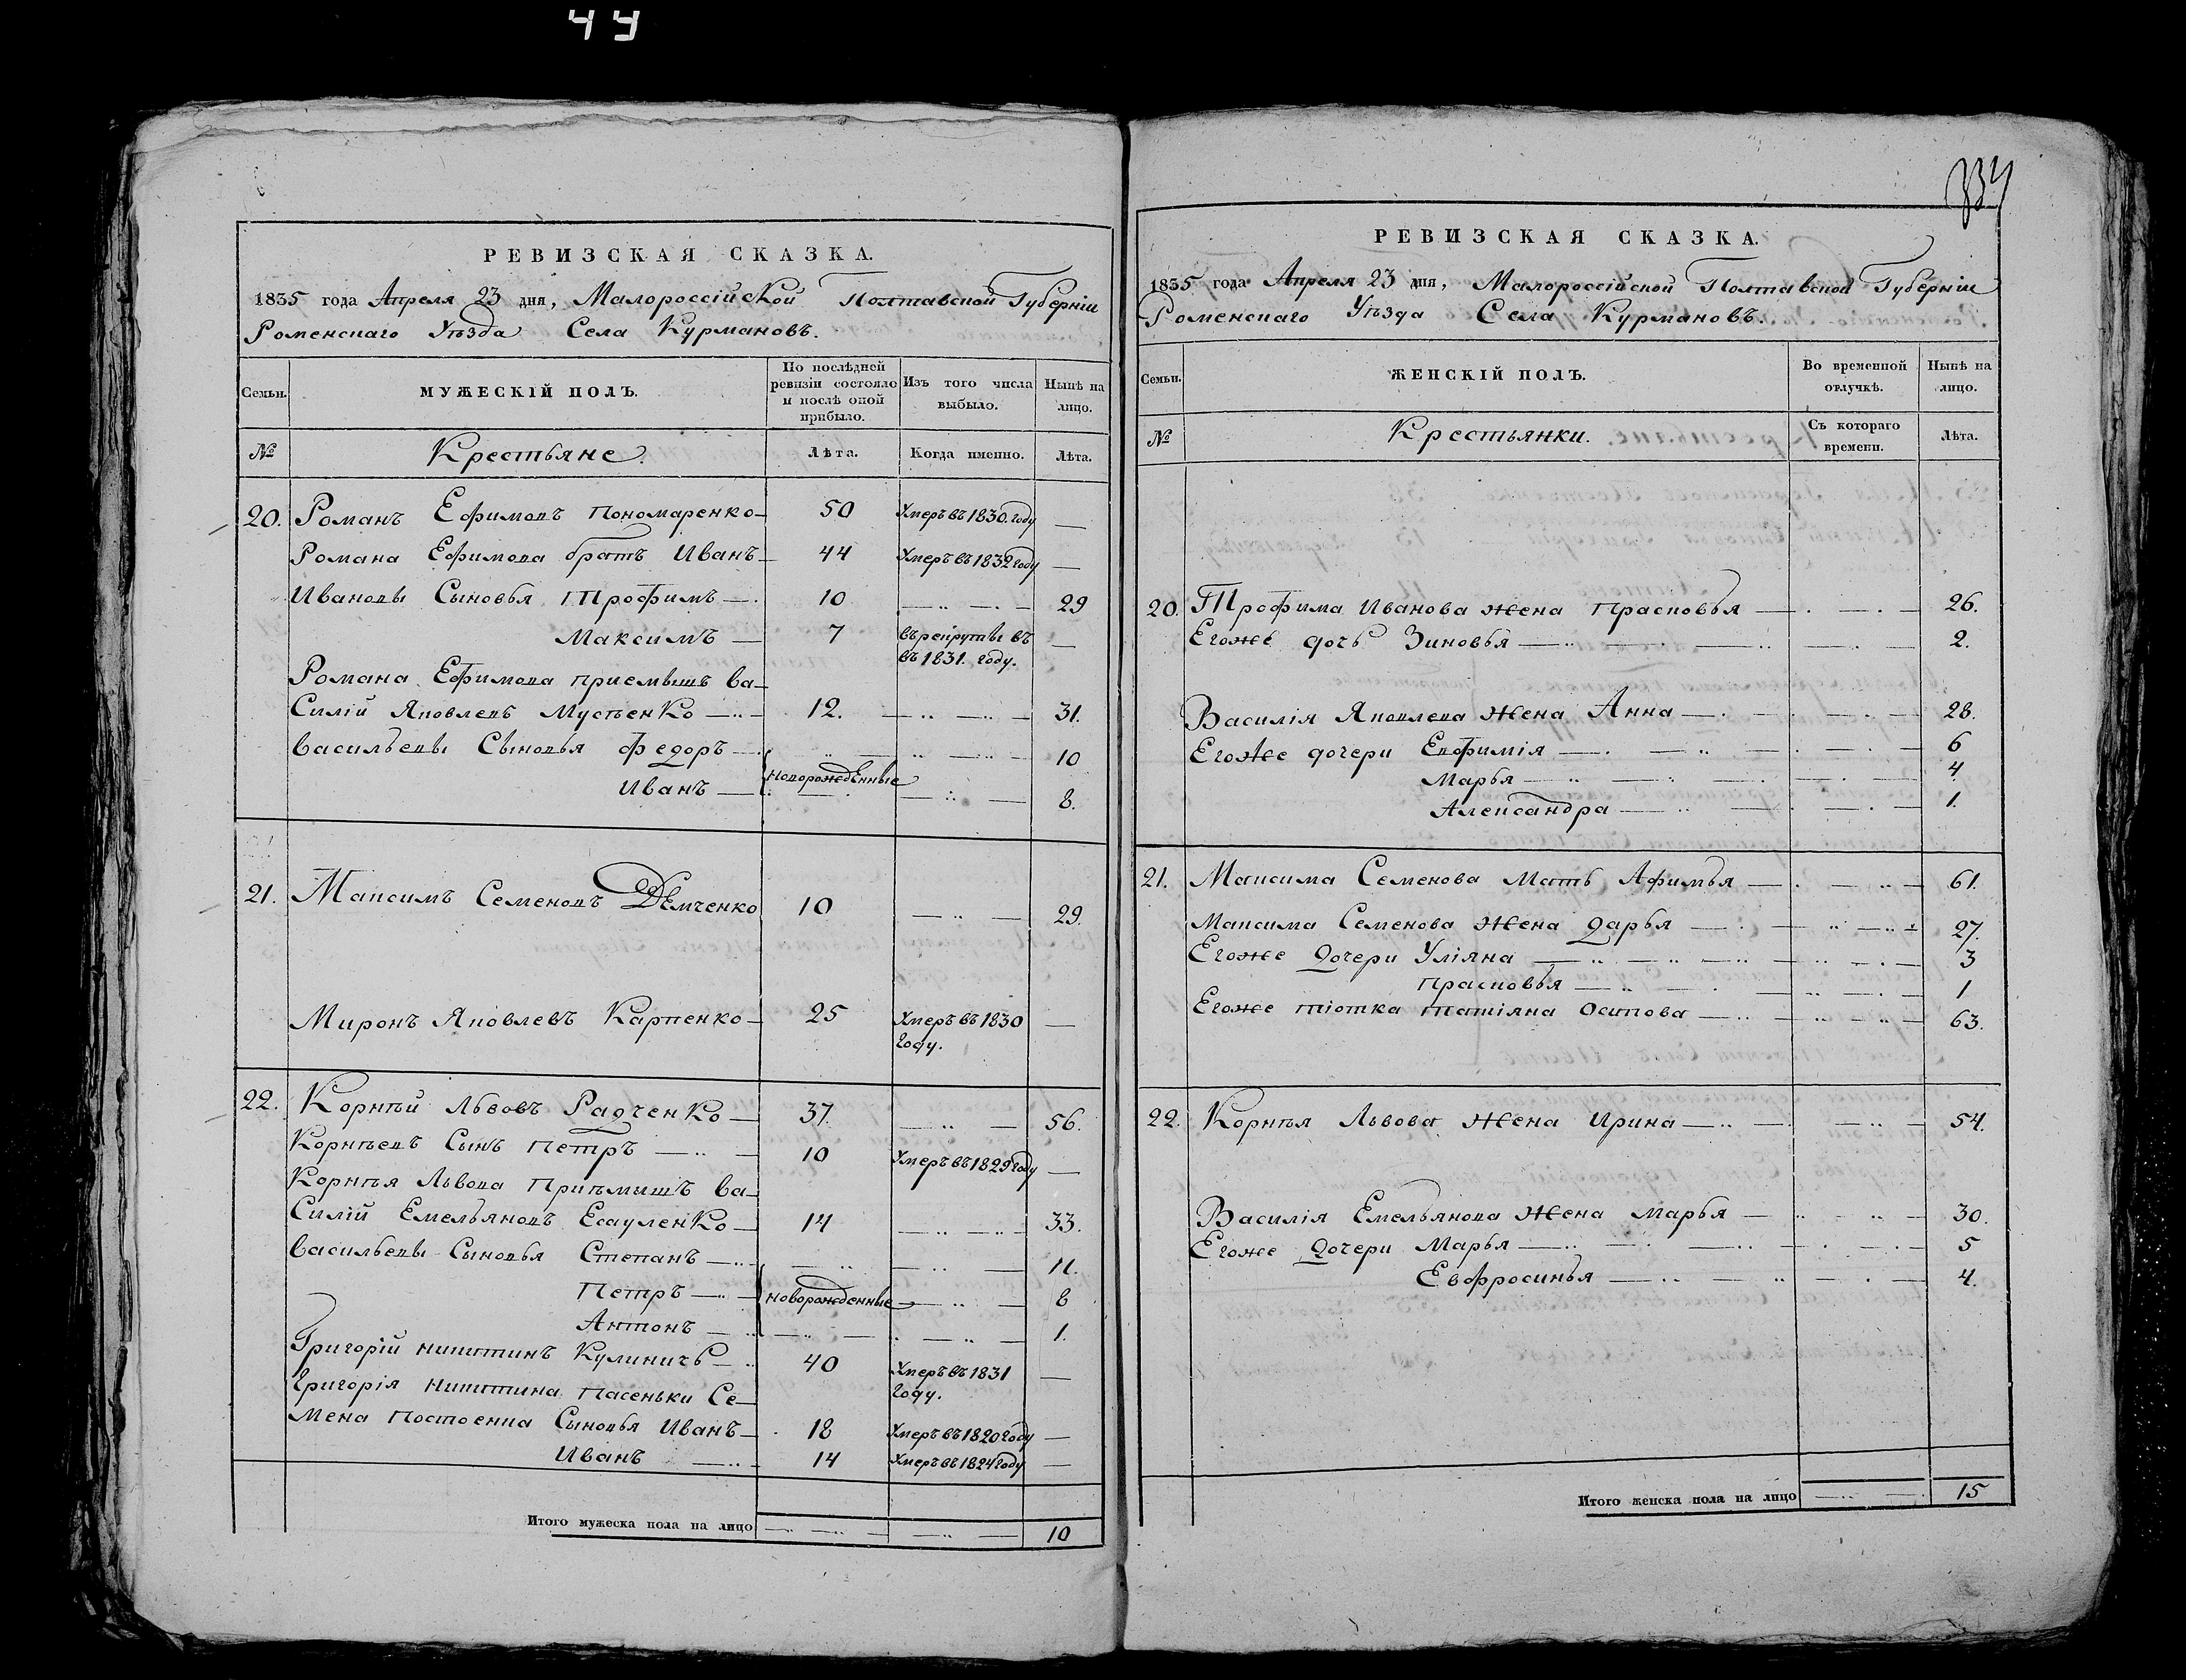 44
РЕВИЗСКАЯ СКАЗКА.
1835 года Апреля 23 дня, Малороссійской Полтавской Губерніи
Роменскаго Уѣзда Села Курмановъ.
Семьи.
МУЖЕСКІЙ ПОЛЪ.
По послѣдней ревизіи состояло и послѣ оной прибыло.
Изъ того числа выбыло.
Нынѣ на лицо.
№
Крестьяне.
Лѣта.
Когда именно.
Лѣта.
20. Романъ Ефимовъ Пономаренко — 50 Умеръ въ 1830. году —
Романа Ефимова братъ Иванъ — 44 Умеръ въ 1832 году —
Ивановы Сыновья Трофимъ — 10 — 29
Максимъ — 7 въ рекруты въ —
въ 1831. году.
Романа Ефимова приемышъ Ва-
силій Яковлевъ Мусѣенко — 12. — 31.
Васильевы Сыновья Федоръ — 10
новорожденные
Иванъ — 8.
21. Максимъ Семеновъ Демченко 10 — 29.
Миронъ Яковлевъ Карпенко — 25 Умеръ въ 1830 —
году.
22. Корнѣй Львовъ Радченко — 37. — 56.
Корнѣевъ Сынъ Петръ — 10 Умеръ въ 1829 году —
Корнѣя Львова Приѣмышъ Ва-
силій Емельяновъ Есауленко — 14 — 33.
Васильевы Сыновья Степанъ — 11.
Петръ — новорожденные — 8
Антонъ — 1.
Григорій Никитинъ Кулиничъ — 40 Умеръ въ 1831 —
году.
Григорія Никитина Пасеньки Се-
мена Постоенка Сыновья Иванъ — 18 Умеръ въ 1820 году —
Иванъ — 14 Умеръ въ 1824 году —
Итого мужеска пола на лицо — 10
334
РЕВИЗСКАЯ СКАЗКА.
1835 года Апреля 23 дня, Малороссійской Полтавской Губерніи
Роменскаго Уѣзда Села Курмановъ.
Семьи.
ЖЕНСКІЙ ПОЛЪ.
Во временной отлучкѣ.
Нынѣ на лицо.
№
Крестьянки.
Съ котораго времени.
Лѣта.
20. Трофима Иванова жена Прасковья — 26.
Егоже дочь Зиновья — 2.
Василія Яковлева Жена Анна — 28.
Егоже дочери Евфимія — 6
Марья — 4
Александра — 1.
21. Максима Семенова Мать Афимья — 61.
Максима Семенова Жена Дарья — 27.
Егоже Дочери Уліяна — 3
Прасковья — 1
Егоже тіотка Татіяна Осипова — 63.
22. Корнѣя Львова Жена Ирина — 54.
Василія Емельянова Жена Марья — 30.
Егоже Дочери Марья — 5
Евфросинья — 4.
Итого женска пола на лицо — 15